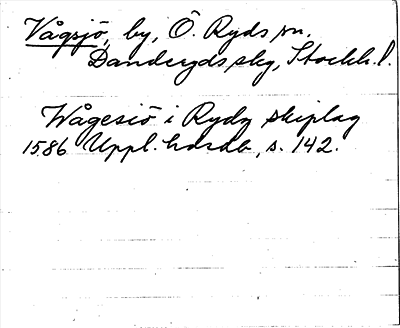 Vågsjö, by, Ö. Ryds sn.
Danderyds skg, Stockh. l.
Wågesiö i Rydz skiplag
1586 Uppl. handl., s. 142.